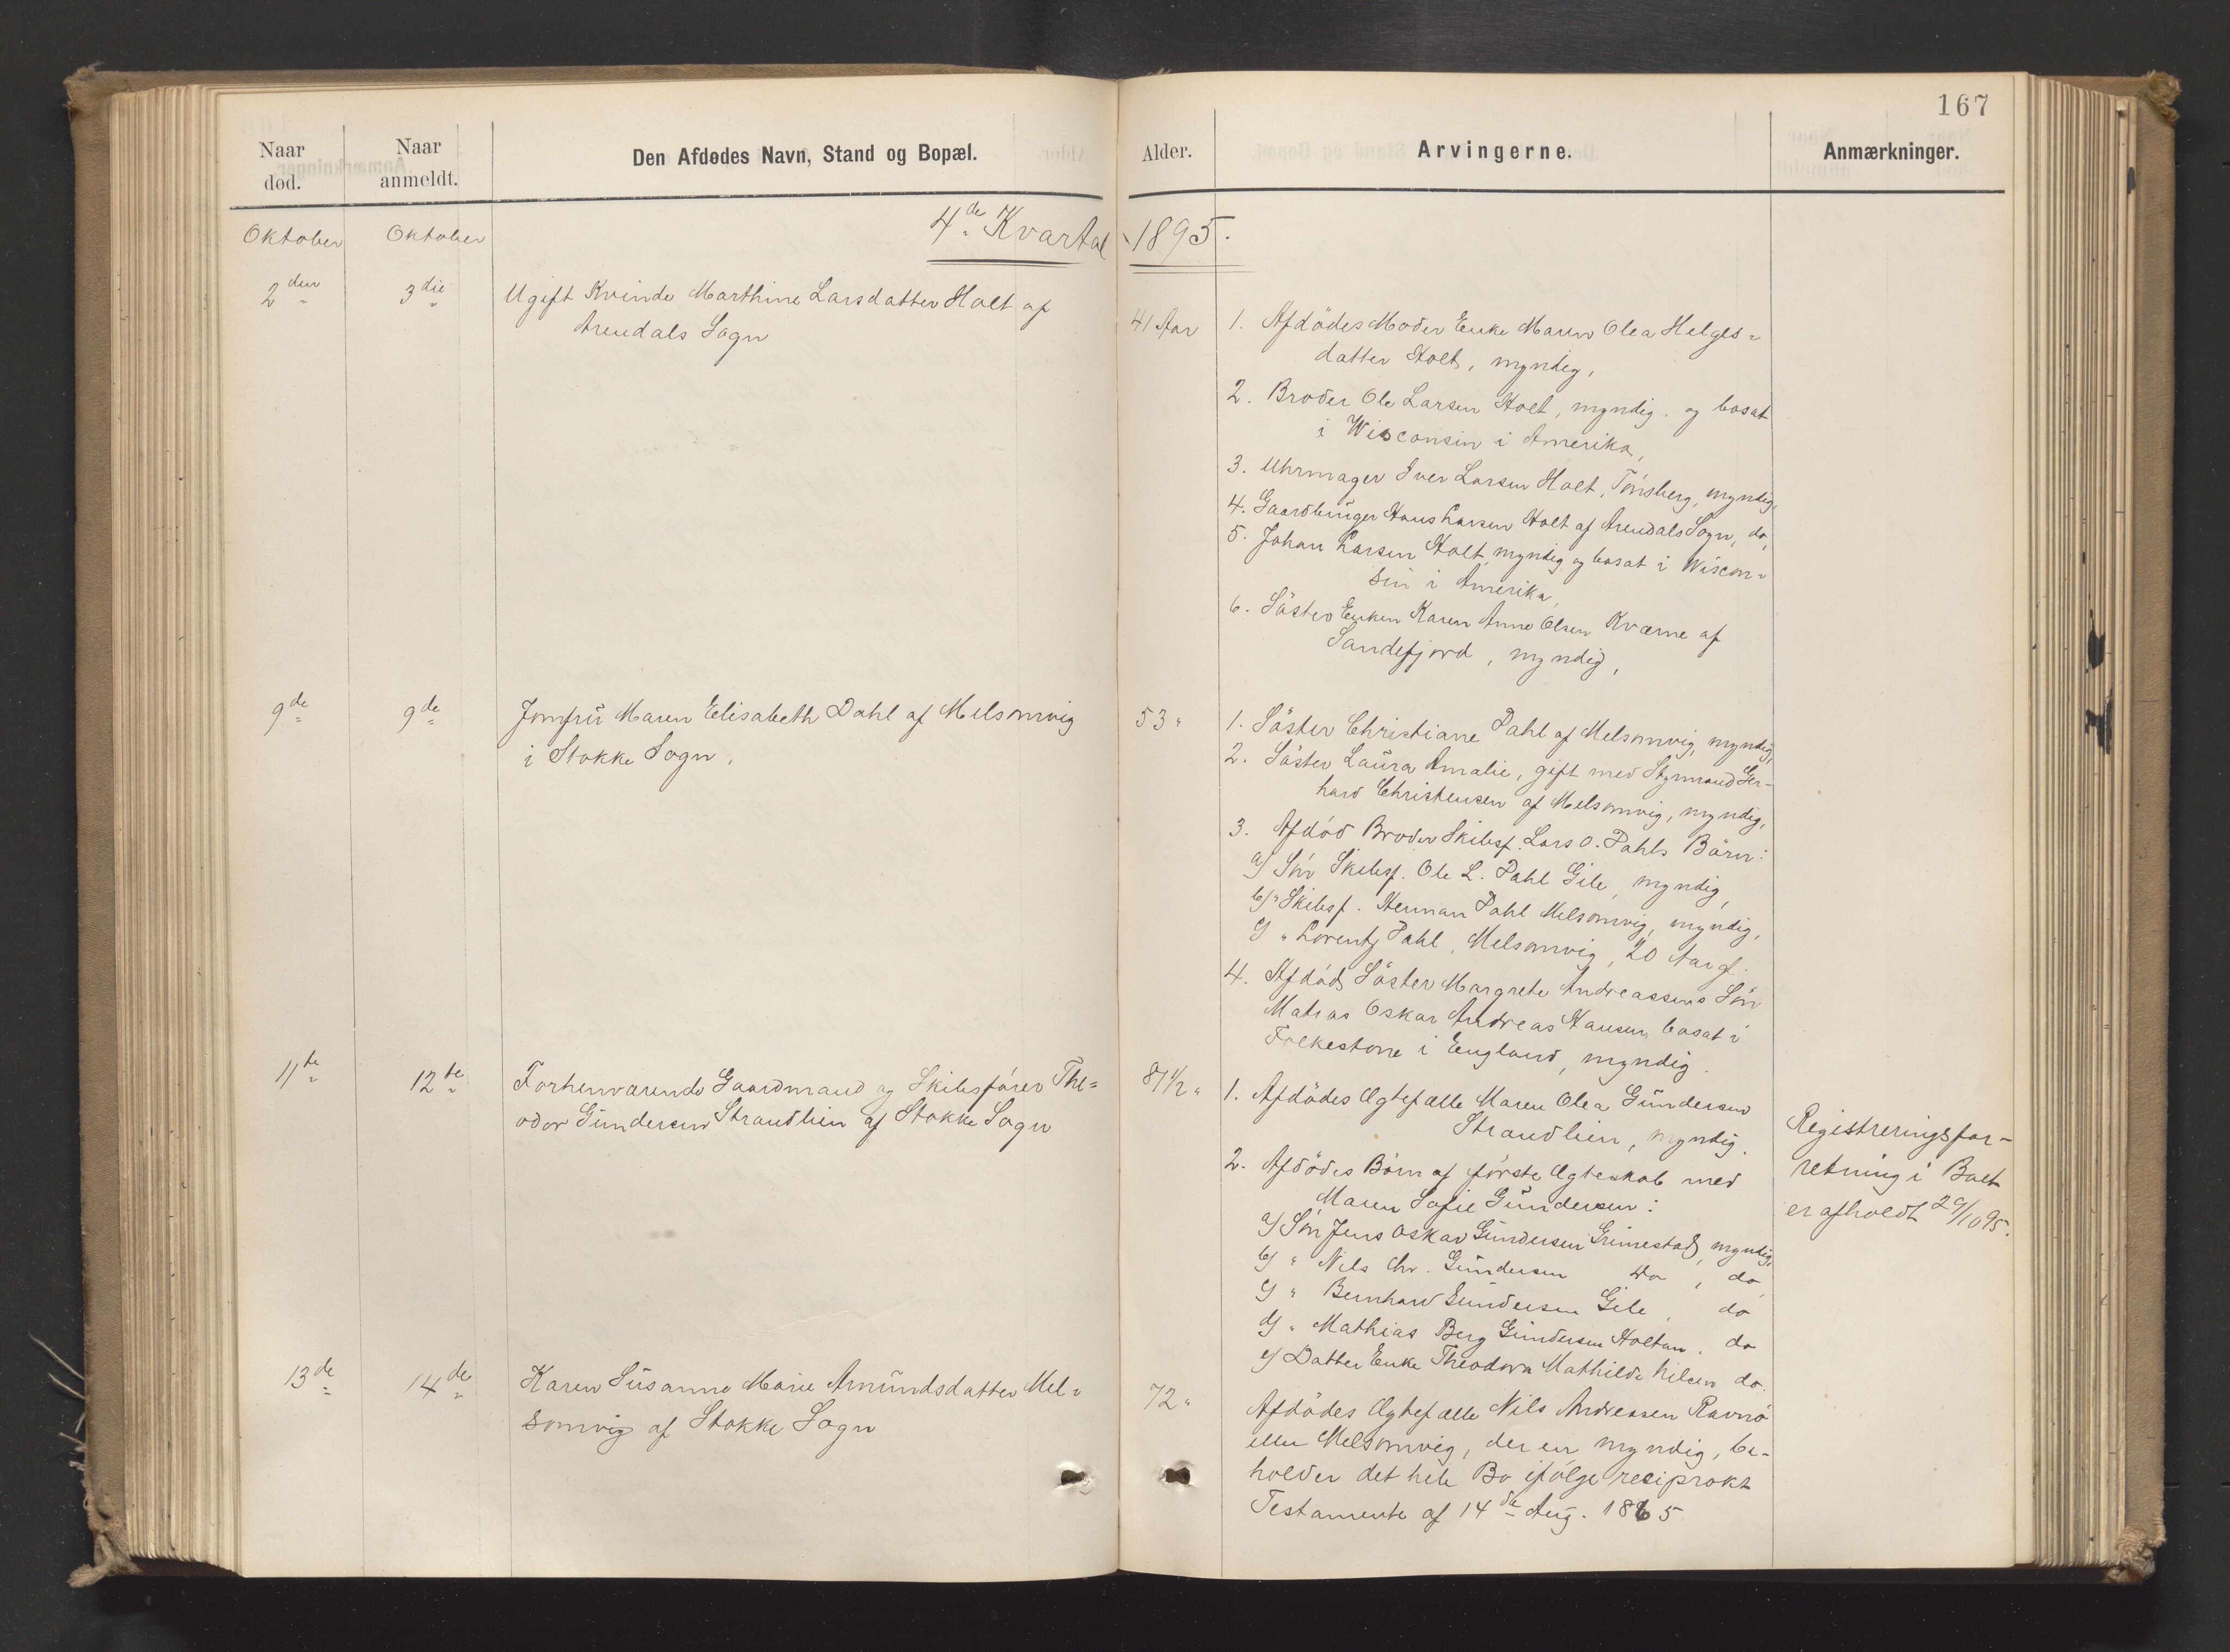 167
Naar død.
Naar anmeldt.
Den Afdødes Navn, Stand og Bopæl.
Alder.
Arvingerne.
Anmærkninger.
4de Kvartal 1895.
Oktober
Oktober
2den
3die
Ugift Kvinde Marthine Larsdatter Holt af
Arendals Sogn
41 Aar
1. Afdödes Moder Enke Maren Olea Helges-
datter Holt, myndig,
2. Broder Ole Larsen Holt, myndig. og bosat
i Wisconsin i Amerika,
3. Uhrmager Iver Larsen Holt, Tönsberg, myndig,
4. Gaardbruger Hans Larsen Holt af Arendals Sogn, do,
5. Johan Larsen Holt, myndig og bosat i Wiscon-
sin i Amerika,
6. Söster Enken Karen Anne Olsen Kværne af
Sandefjord, myndig,
9de
9de
Jomfru Maren Elisabeth Dahl af Melsomvig
i Stokke Sogn.
53 "
1. Söster Christiane Dahl af Melsomvig, myndig,
2. Söster Laura Amalie, gift med Styrmand Ger-
hard Christensen af Melsomvig, myndig,
3. Afdöd Broder Skibsf. Lars O. Dahls Börn:
a) Sön Skibsf. Ole L. Dahl Gile, myndig,
b) " Skibsf. Herman Dahl Melsomvig, myndig,
c) " Lorentz Dahl, Melsomvig, 20 Aar gl.
4. Afdöds Söster Margrete Andreassens Sön
Matias Oskar Andreas Hansen, bosat i
Folkestone i England, myndig.
11te
12te
Forhenværende Gaardmand og Skibsförer The-
odor Gundersen Strandlien af Stokke Sogn
81 1/2 "
1. Afdödes Ægtefælle Maren Olea Gundersen
Strandlien, myndig.
2. Afdödes Börn af förste Ægteskab med
Maren Sofie Gundersen:
a) Sön Jens Oskar Gundersen Grimestad, myndig,
b) " Nils Chr. Gundersen do, do
c) " Bernhard Gundersen Gile, do
d) " Mathias Berg Gundersen Holtan, do
e) Datter Enke Theodora Mathilde Nilsen do.
Registreringsfor-
retning i Boet
er afholdt 29/10 95.
13de
14de
Karen Susanne Marie Amundsdatter Mel-
somvig af Stokke Sogn
72 "
Afdödes Ægtefælle Nils Andreasen Ravnö
eller Melsomvig, der er myndig, be-
holder det hele Bo ifölge reciprokt
Testamente af 14de Aug. 1865